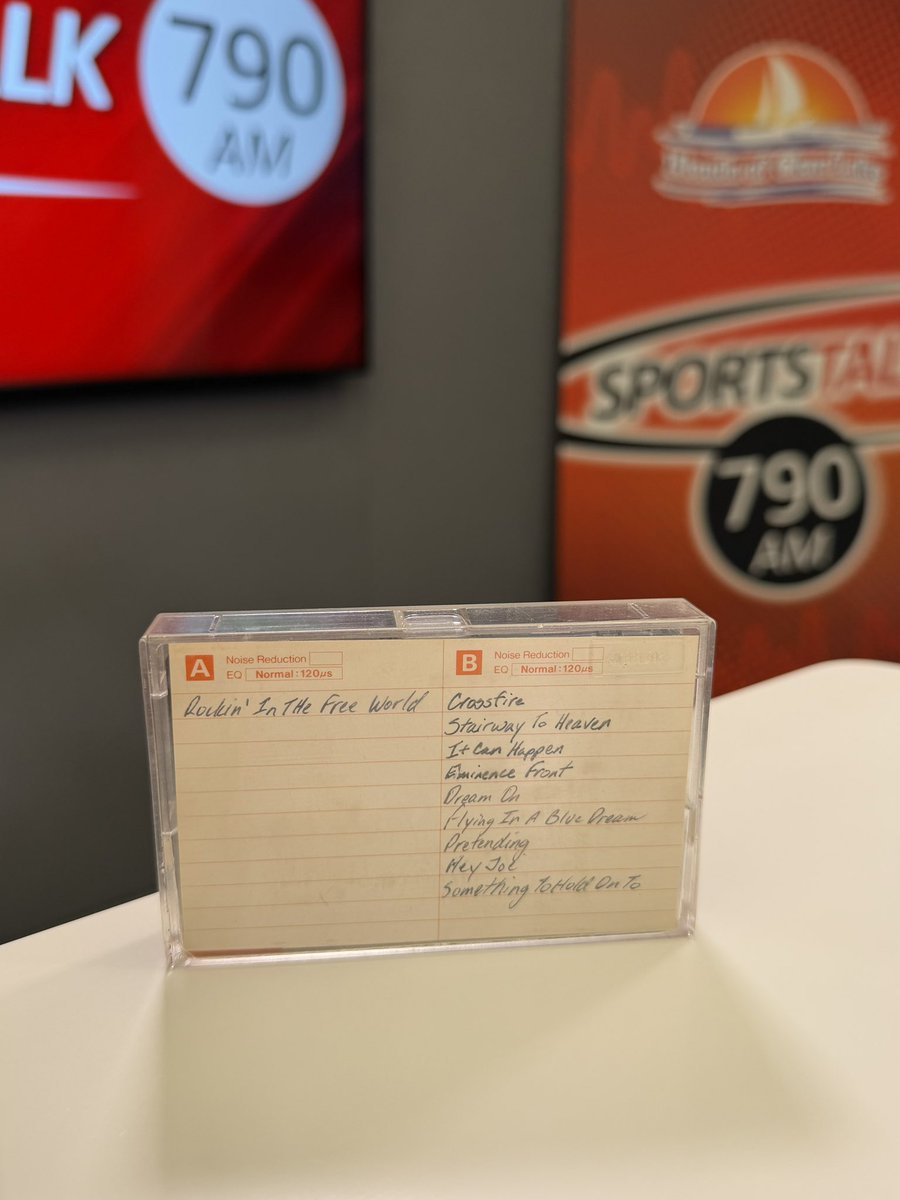 LK
790
AM
SPORTSTAL
790
AM
A
Noise Reduction
EQ Normal:120µs
Rockin' In THe Free World
B
Noise Reduction
EQ Normal:120µs
Crossfire
Stairway To Heaven
It Can Happen
Eminence Front
Dream On
Flying In A Blue Dream
Pretending
Hey Joe
Something To Hold On To